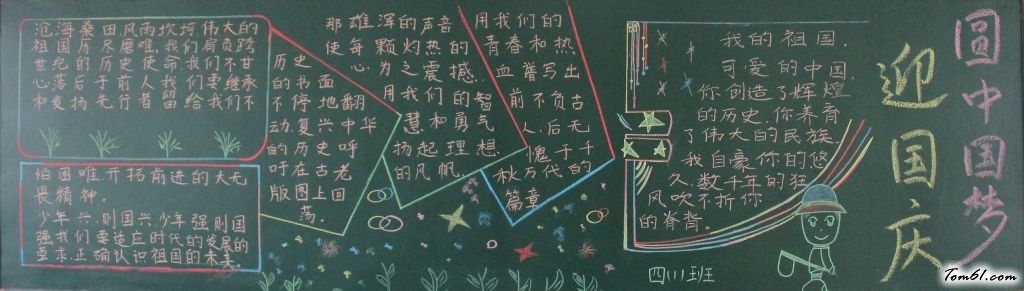 沧海桑田,风雨坎坷,伟大的
祖国历尽磨难,我们肩负跨
世纪的历史使命,我们不甘
心落后于前人我们要继承
和发扬先行者留给我们不
怕困难开拓前进的大无
畏精神.
少年兴,则国兴,少年强则国
强我们要适应时代的发展的
要求正确认识祖国的未来
历史
的书面
不停地翻
动.复兴中华
的历史呼
吁在古老
版图上回
荡。
那雄浑的声音
使每颗灼热的
心.为之震撼.
用我们的智
慧和勇气
扬起理想
的风帆.
用我们的
青春和热
血誊写出
前不负古
人.后无
愧于千
秋万代的
篇章
我的祖国,
可爱的中国,
你创造了辉煌
的历史,你养育
了伟大的民族.
我自豪你的悠
久,数千年的狂
风吹不折你
的脊背。
四(1)班
迎国庆
圆中国梦
Tom61.com